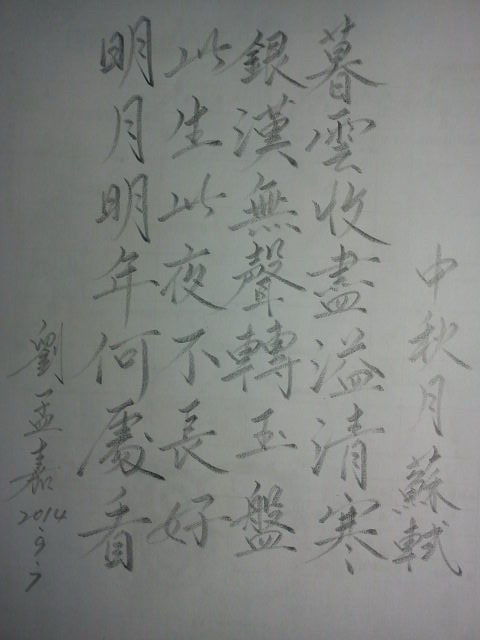 中秋月 蘇軾
暮雲收盡溢清寒
銀漢無聲轉玉盤
此生此夜不長好
明月明年何處看
劉孟嘉 2014.9.7